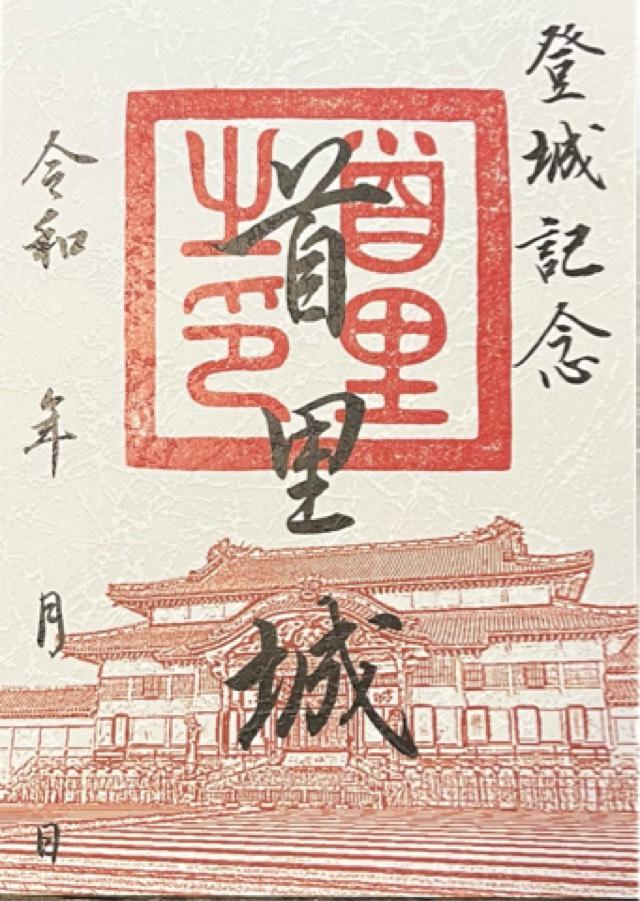 登城記念
首里之印
首里城
令和 年 月 日